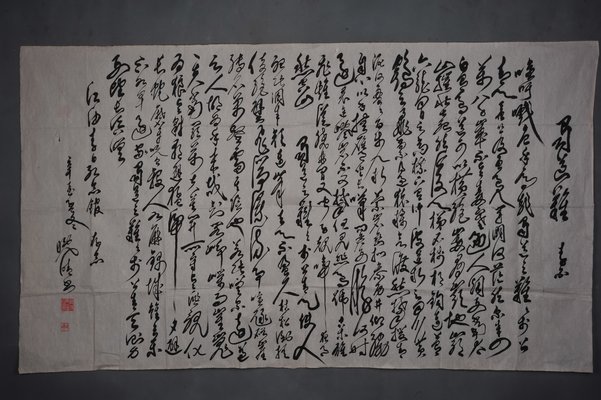 蜀道難 李白
噫吁嚱危乎高哉蜀道之難難於上
青天蠶叢及魚鳧開國何茫然爾來四
萬八千歲不與秦塞通人煙西當太
白有鳥道可以橫絕峨眉巔地崩
山摧壯士死然後天梯石棧相鉤連上有
六龍回日之高標下有沖波逆折之回川黃
鶴之飛尚不得過猿猱欲度愁攀援青
泥何盤盤百步九折縈巖巒捫參歷井仰脅
息以手撫膺坐長嘆問君西遊何時
還畏途巉巖不可攀但見悲鳥號古木雄
飛雌從繞林間又聞子規啼夜月
愁空山蜀道之難難於上青天使人
聽此凋朱顏連峰去天不盈尺枯松倒掛
倚絕壁飛湍瀑流爭喧豗砯崖
轉石萬壑雷其險也若此嗟爾遠道
之人胡為乎來哉劍閣崢嶸而崔嵬
一夫當關萬夫莫開所守或匪親化
為狼與豺朝避猛虎夕避
長蛇磨牙吮血殺人如麻錦城雖云樂
不如早還家蜀道之難難於上青天側身
西望長咨嗟
江油李白紀念館 留念